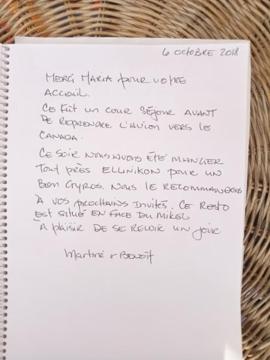 6 OCTOBRE 2018
MERCI MARIA POUR VOTRE
ACCUEIL.
CE FUT UN COUR SÉJOUR AVANT
DE REPRENDRE L'AVION VERS LE
CANADA.
CE SOIR NOUS AVONS ÉTÉ MANGER
TOUT PRÈS ELLINIKON POUR UN
BON GYROS. NOUS LE RECOMMANDONS
À VOS PROCHAINS INVITÉS. CE RESTO
EST SITUÉ EN FACE DU MIKEL
À PLAISIR DE SE REVOIR UN JOUR
Martine & Benoît